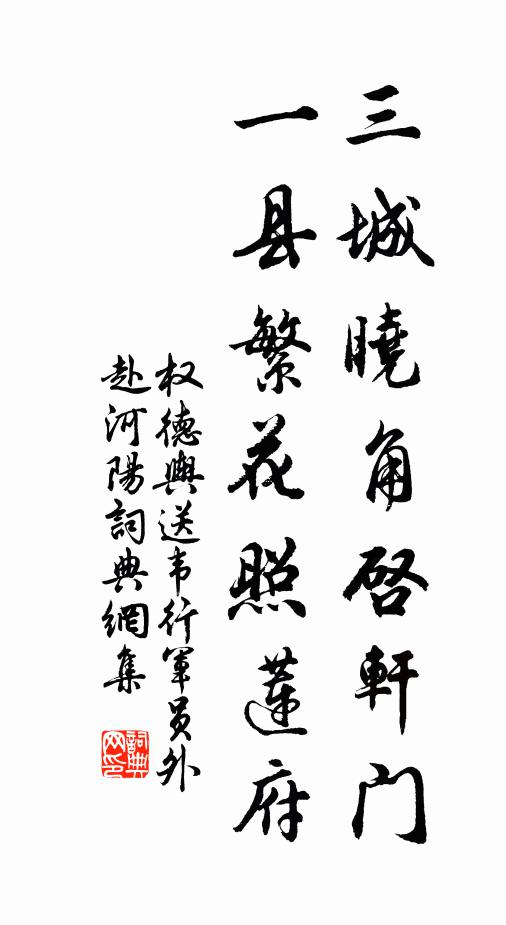 三城曉角启軒门
一县繁花照蓮府
权德輿送韦行軍员外
赴河陽詞典網集
詞典
网印